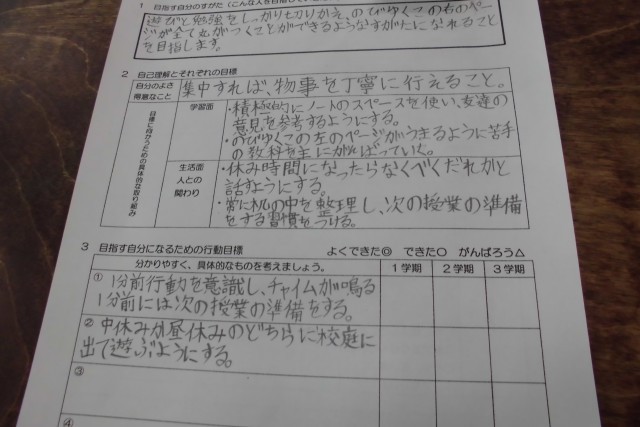 1 目指す自分のすがた(こんな人を目指してい
遊びと勉強をしっかり切りかえ、のびゆくこの右のペー
ジが全て丸がつくことができるようなすがたになれること
を目指します。
2 自己理解とそれぞれの目標
自分のよさ
得意なこと
集中すれば、物事を丁寧に行えること。
目標に向かうための具体的な取り組み
学習面
・積極的にノートのスペースを使い、友達の
意見を参考するようにする。
・のびゆくこの左のページがうまるように苦手
の教科を主にがんばっていく。
生活面
人との
関わり
・休み時間になったらなくべくだれかと
話すようにする。
・常に机の中を整理し、次の授業の準備
をする習慣をつける。
3 目指す自分になるための行動目標 よくできた◎ できた○ がんばろう△
分かりやすく、具体的なものを考えましょう。 1学期 2学期 3学期
① 1分前行動を意識し、チャイムが鳴る
1分前には次の授業の準備をする。
② 中休みか昼休みのどちらに校庭に
出て遊ぶようにする。
③
④